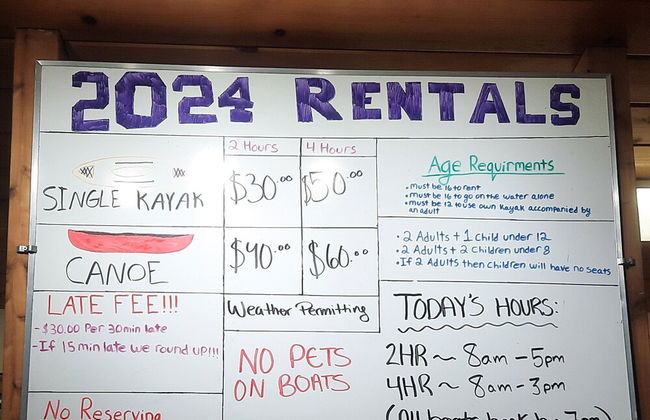 2024 RENTALS
2 Hours 4 Hours
SINGLE KAYAK $30.00 $50.00
CANOE $40.00 $60.00
LATE FEE!!!
- $30.00 Per 30min late
- If 15min late we round up!!!
No Reserving
Weather Permitting
NO PETS
ON BOATS
Age Requirments
• must be 16 to rent
• must be 16 to go on the water alone
• must be 12 to use own Kayak accompanied by
an adult
• 2 Adults + 1 Child under 12
• 2 Adults + 2 Children under 8
• If 2 Adults then children will have no seats
TODAY'S HOURS:
2HR ~ 8am - 5pm
4HR ~ 8am - 3pm
(All boats back by 7pm)